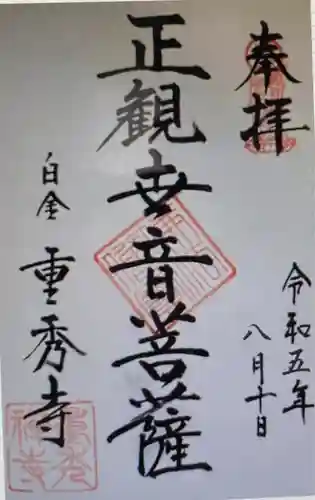 奉拝
令和五年
八月十日
正観世音菩薩
白金 重秀寺